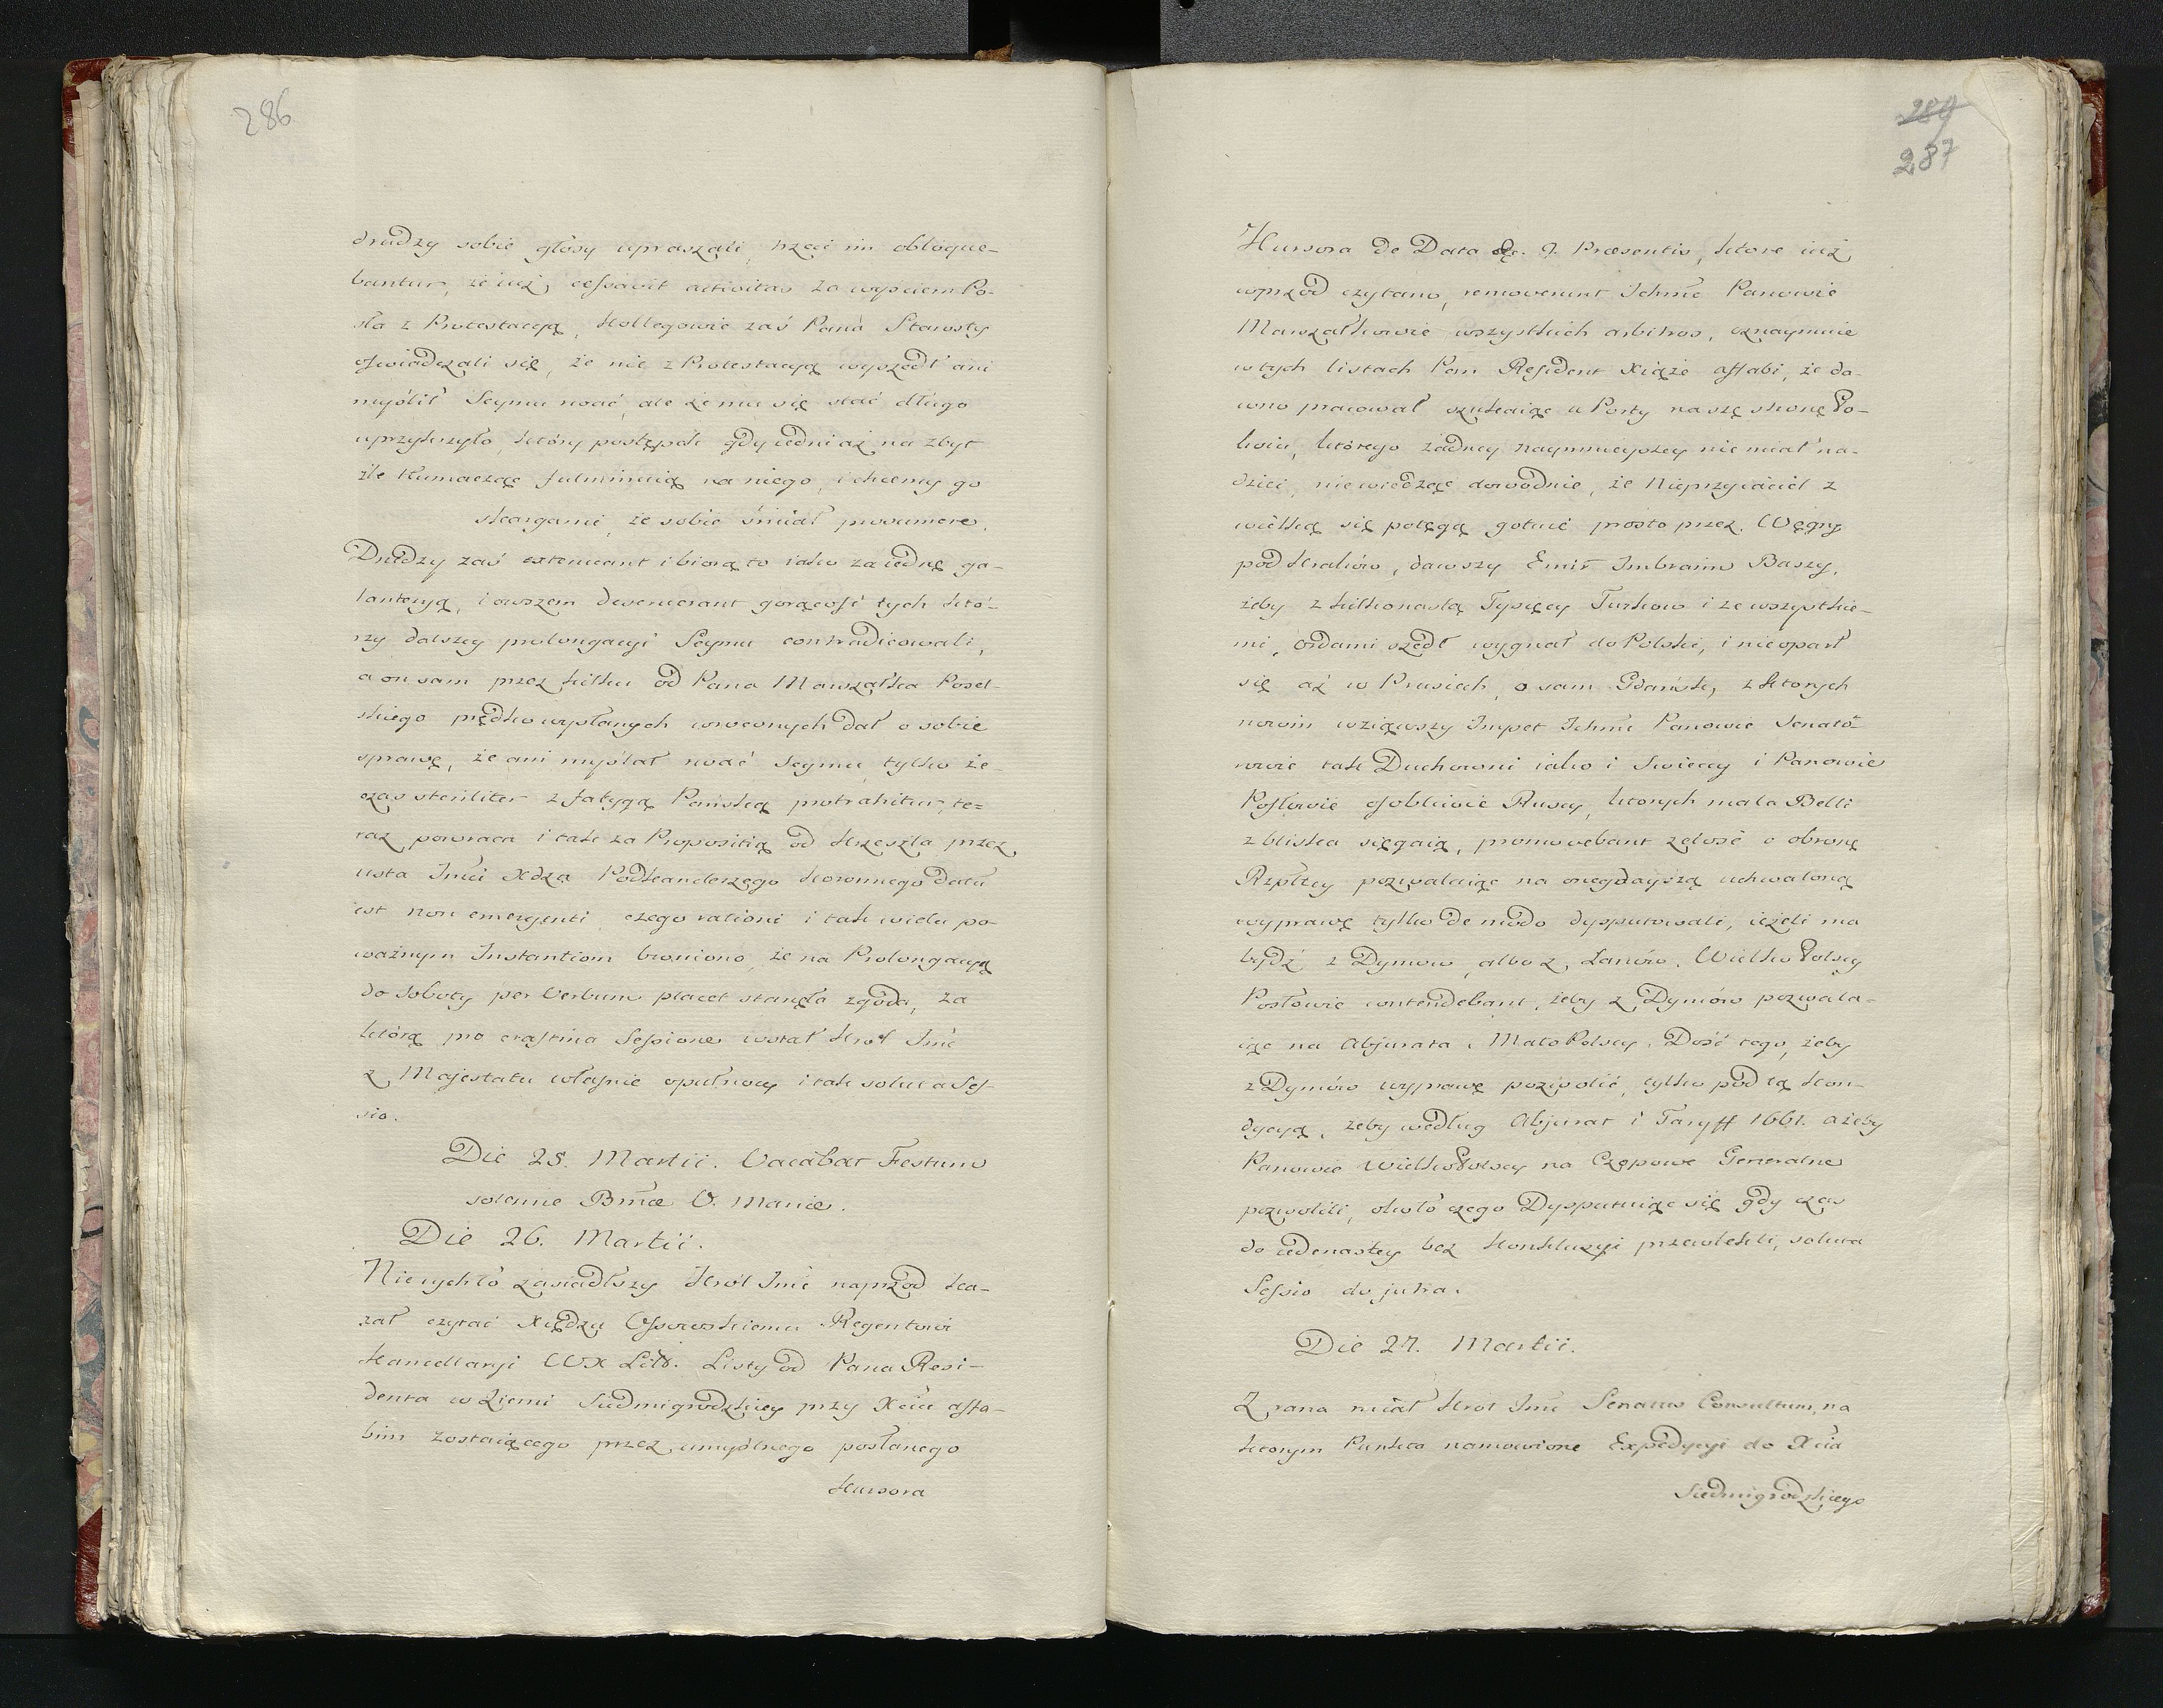 286
drudzy sobie głosy upraszali, trzeci im obloque-
bantur, że iuż cessavit activitas za wyściem Po-
sła z Protestacyą, Kollegowie zaś Pana Starosty
oświadczali się, że nie z Protestacyą wyszedł ani
myślił Seymu rwać, ale że mu się stać długo
uprzykrzyło, który postępek gdy iedni aż na zbyt
źle tłumacząc fulminuią na niego, i chcemy go
skarganie, że sobie śmiał prosumere,
Drudzy zaś extenuant i biorą to iako za iednę ga-
lanteryą, i owszem devenerant gorącość tych któ-
rzy dalszey prolongacyi Seymu contradicowali,
a on sam przez kilku od Pana Marszałka Posel-
skiego prędko wysłanych wrócony dał o sobie
sprawę, że ani myślał rwać Seymu, tylko że
czas steriliter z fatygą Pańską protrahitur, te=
raz powraca i tak za Propositią od Krzeszła przez
usta Jmci Xdza Podkanclerzego Koronnego data
est non emergenti czego rationi i tak wielu po-
ważnym Instantiom broniono, że na Prolongacyą
do Soboty per Verbum placet stanęła zgoda, za
którą pro crastina Sessione wstał Krol Jmć
z Majestatu właśnie opułnocy i tak soluta Ses-
sio.
Die 25. Martii. Vacabat Festum
solenne Bmæ V. Mariæ.
Die 26. Martii.
Nierychło zasiadłszy Krol Jmć naprzod ka-
zał czytać Xiędzu Ossowskiemu Regentowi
Kancellaryi WX Litt. Listy od Pana Resi-
denta w Ziemi Siedmigrodzkiey przy Xciu affa-
bim zostaiącego przez umyślnego posłanego
Kursora
289
287
Kursora de Data 9. Præsentis, ktore iuż
wprzod czytano, removerunt Ichmć Panowie
Marszałkowie wszystkich arbitros, oznaymuie
w tych listach Pan Resident Xiąże affabi, że da-
wno pracował szukaiąc u Porty naszę stronę Po-
koiu, którego żadney naymnieyszey nie miał na-
dziei, nie wiedząc dowodnie, że Nieprzyiaciel z
wielką się potęgą gotuie prosto przez Węgry
pod Kraków, dawszy Emir Imbraim Baszy,
żeby z kilkonastą Tysięcy Turkow i ze wszystkie-
mi ordami szedł wygnał do Polski, i nie oparł
się aż w Prusiech, o sam Gdańsk, z ktorych
nowin wziąwszy Impet Ichmć Panowie Senato-
rowie tak Duchowni iako i Swieccy i Panowie
Posłowie osobliwie Ruscy, ktorych mala Belli
z bliska sięgaią, promovebant żelose o obronę
Rzpltey pozwalaiąc na onegdayszą uchwaloną
wyprawę tylko de modo dysputowali, ieżeli ma
bydź z Dymow albo z Łanów. Wielko Polscy
Posłowie contendebant, żeby z Dymów pozwala-
iąc na Abjurata, Mało Polscy, Dość tego, żeby
z Dymów wyprawę pozwolić, tylko pod tą Kon-
dycyą, żeby według Abjurat i Taryff 1661. ażeby
Panowie WielkoPolscy na Czopowe Generalne
pozwolili, około czego Dysputuiąc się gdy czas
do iedenastey bez Konkluzyi przewlekli, soluta
Sessio do jutra.
Die 27. Martii.
Z rana miał Krol Jmć Senatus Consultum, na
ktorym Punkta namowione Expedycyi do Xcia
Siedmigrodzkiego